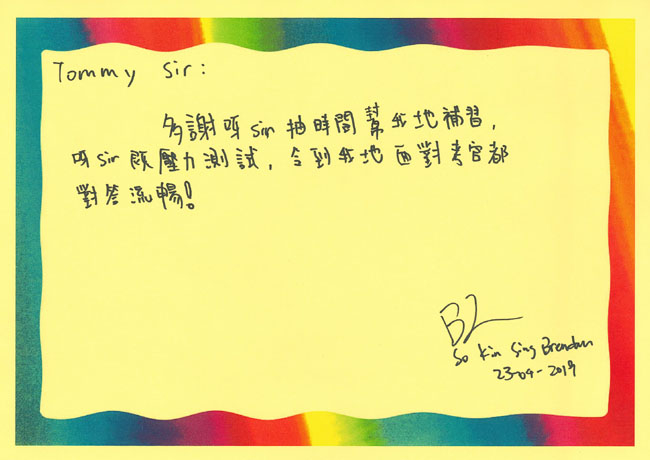 Tommy Sir:
多謝呀sir抽時間幫我地補習,
呀sir既壓力測試,令到我地面對考官都
對答流暢!
So Kin Sing Brendan
23-09-2019